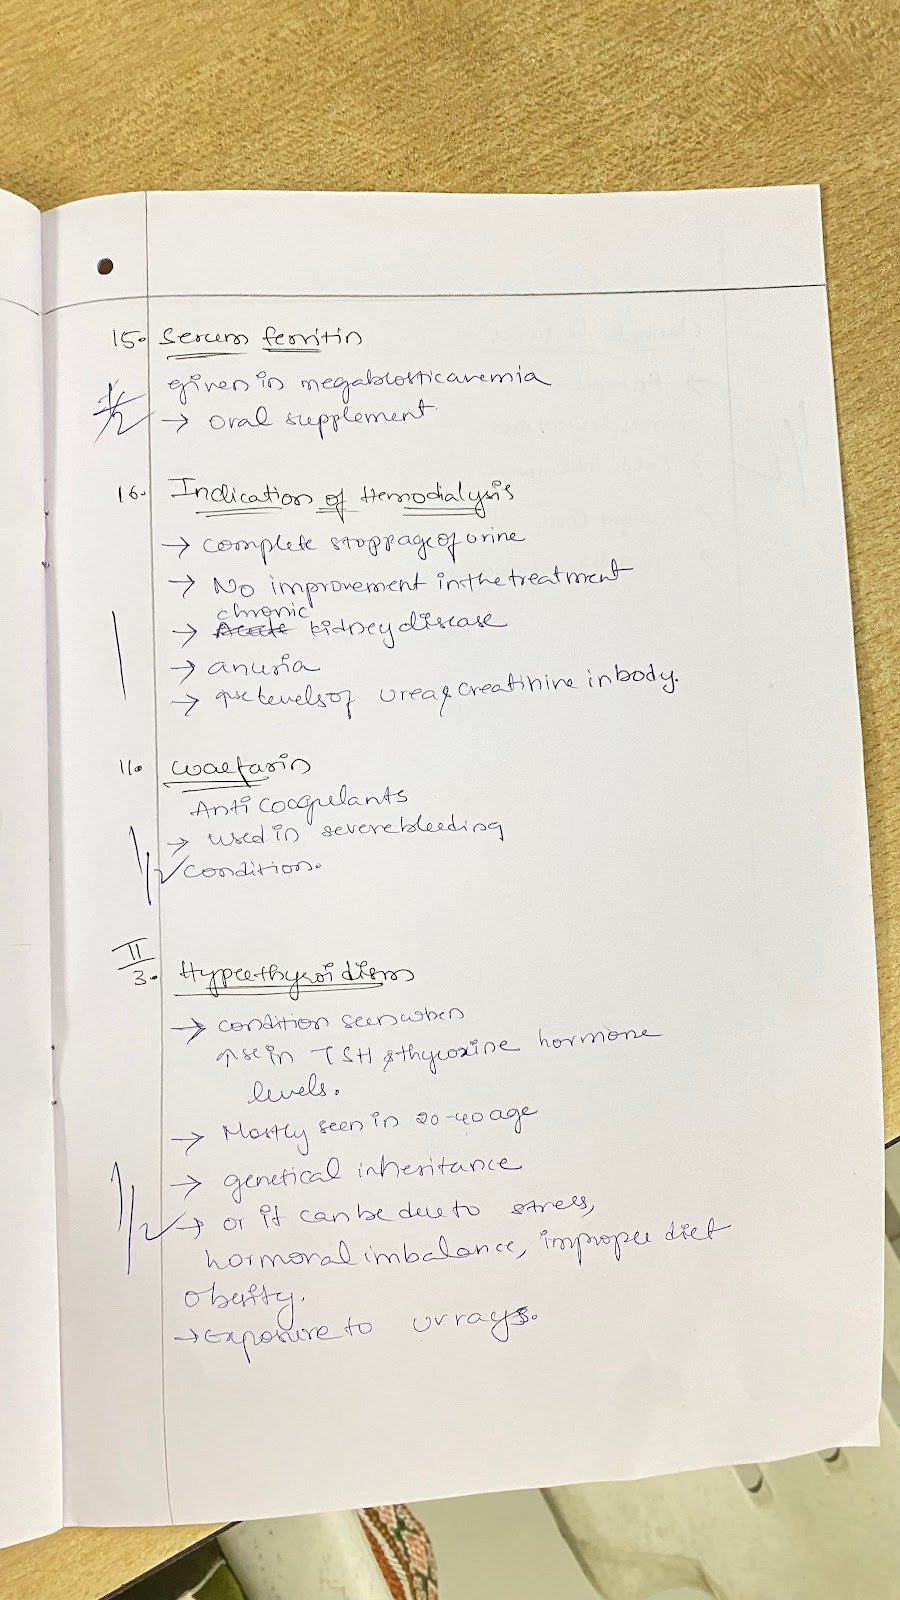 15. Serum ferritin
given in megablosticanemia
→ oral supplement
1/2
16. Indication of Hemodialysis
→ complete stoppage of urine
→ No improvement in the treatment
chronic
→ Acute kidney disease
→ anuria
→ ↑se levels of urea & creatinine in body.
1
11. Warfarin
Anti coagulants
→ used in severe bleeding
condition.
1/2
II
3. Hyperthyroidism
→ condition seen when
↑se in TSH & thyroxine hormone
levels.
→ Mostly seen in 20-40 age
→ genetical inheritance
1/2
→ or it can be due to stress,
hormonal imbalance, improper diet
obesity.
→ exposure to uv rays.